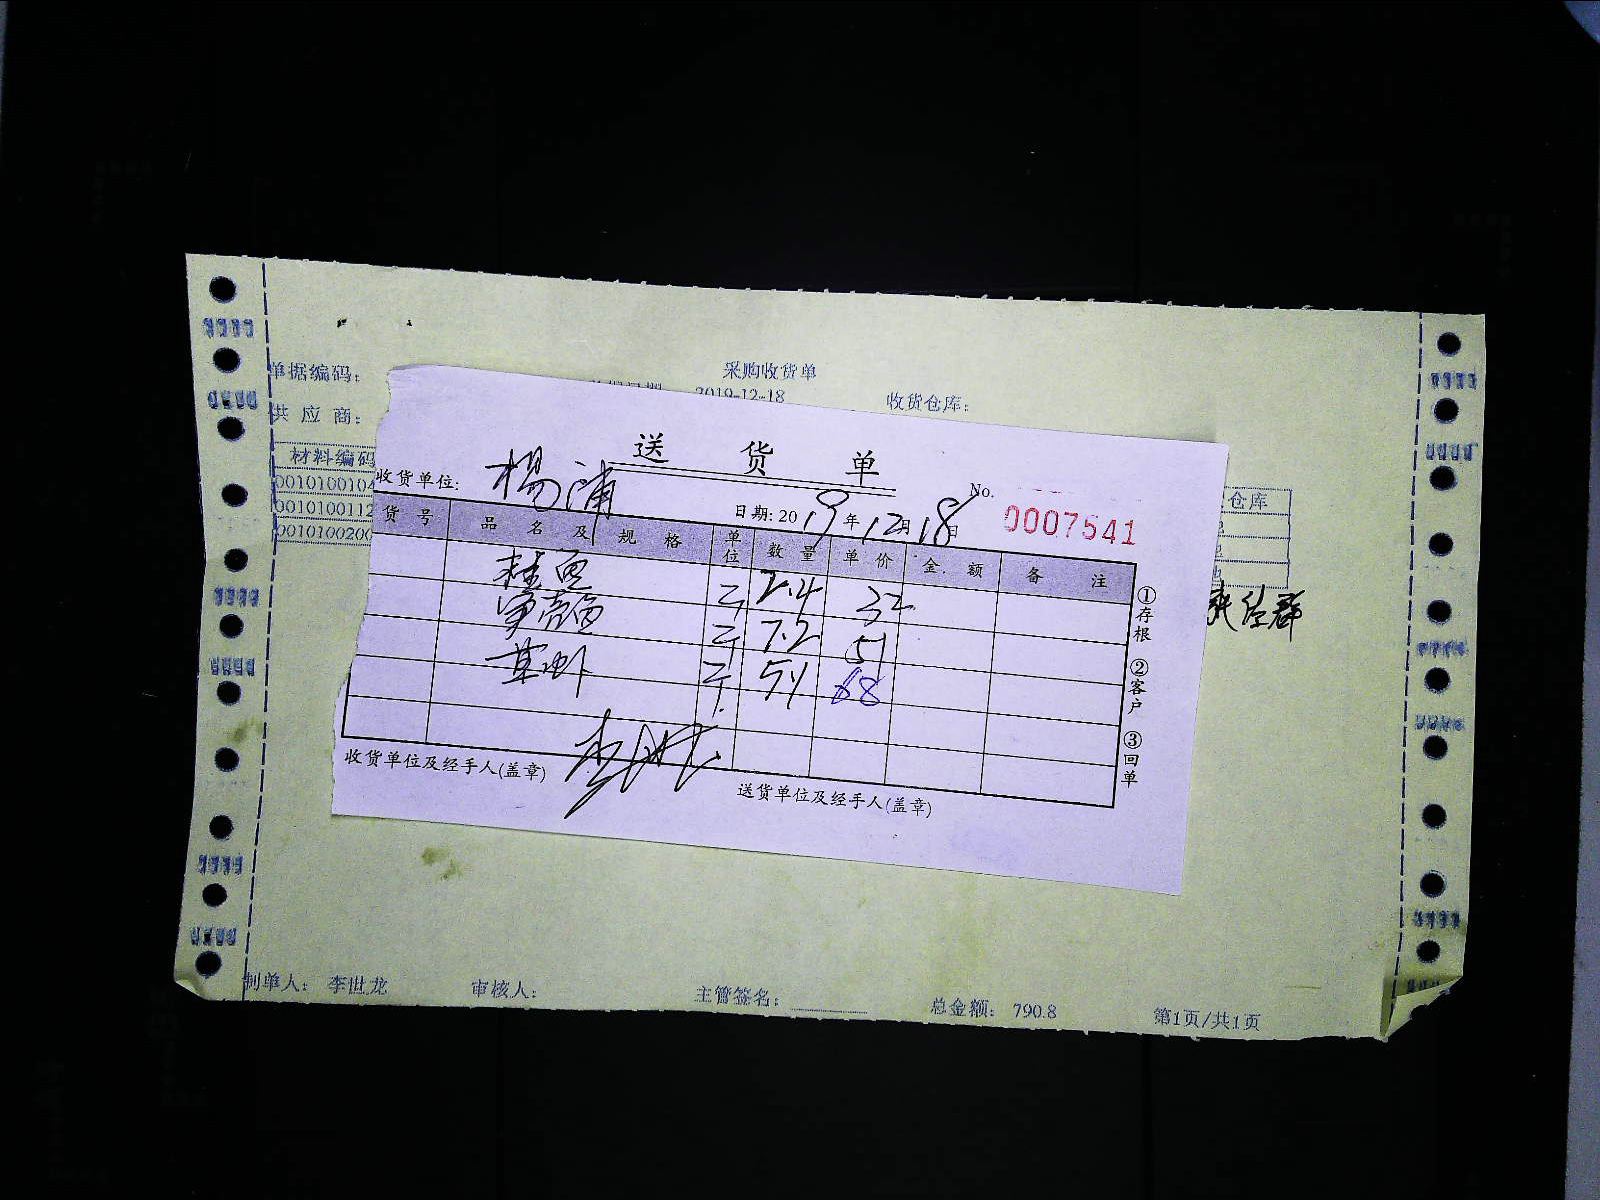 采购收货单
单据编码：
2019-12-18
收货仓库：
供 应 商：
材料编码
仓库
0010100104
0010100112
0010100200
送 货 单
收货单位: 杨浦
日期: 2019年12月18日
No. 0007541
货 号 品 名 及 规 格 单位 数 量 单 价 金 额 备 注
桂鱼 2.4 32
7.2 51
草虾 5.1 68
①存根 ②客户 ③回单
收货单位及经手人(盖章)
送货单位及经手人(盖章)
制单人： 李世龙 审核人： 主管签名： 总金额： 790.8 第1页/共1页